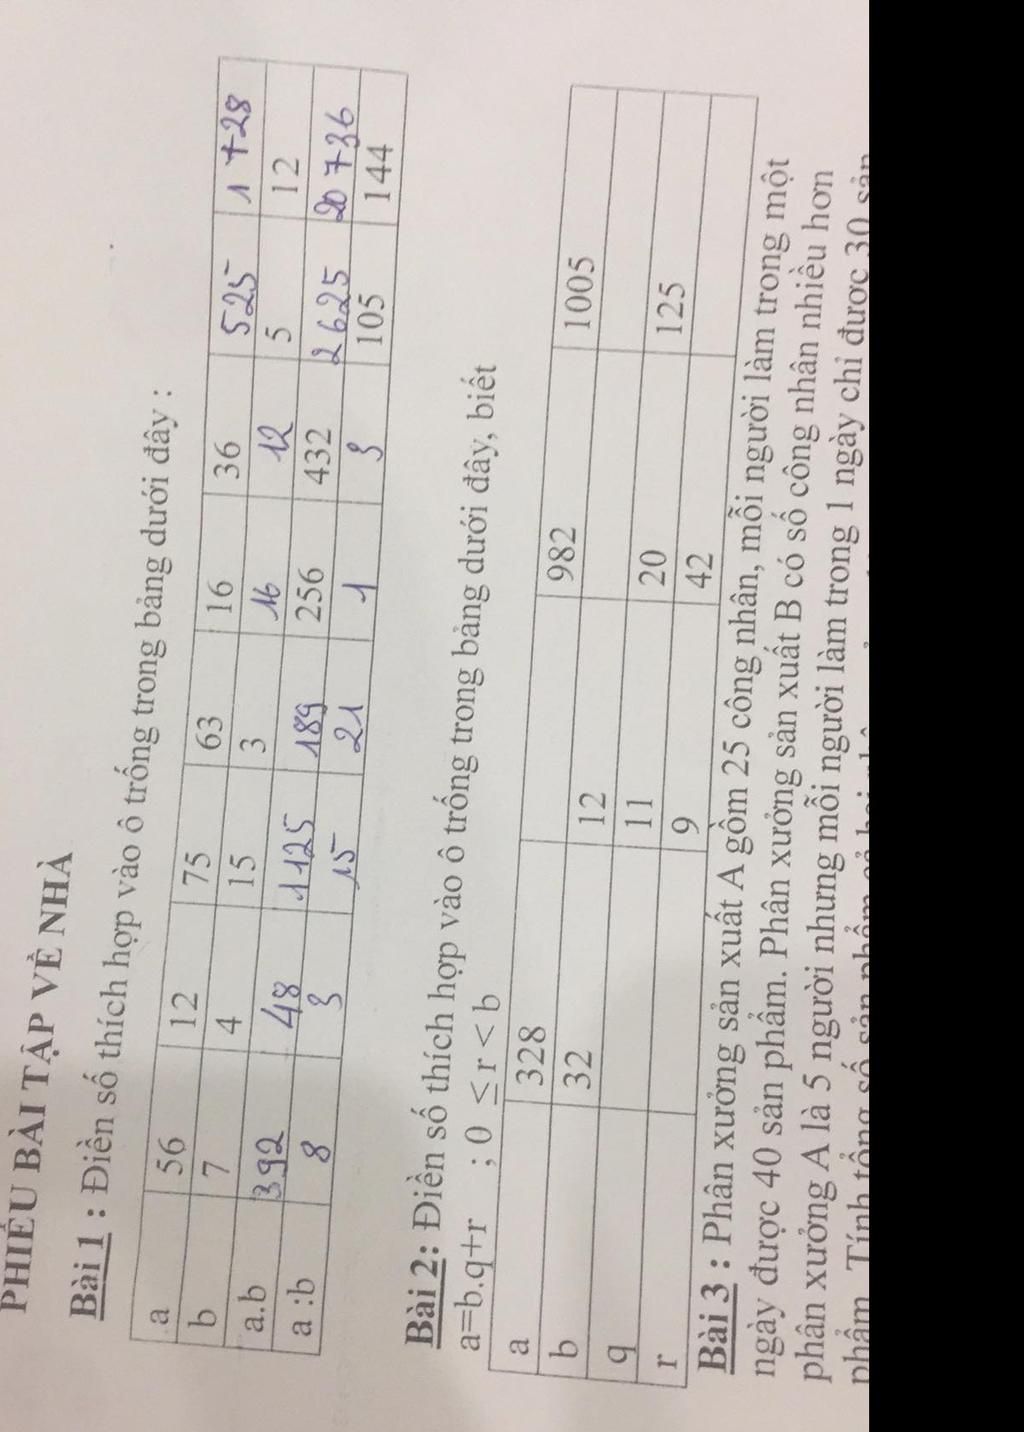 PHIẾU BÀI TẬP VỀ NHÀ
Bài 1 : Điền số thích hợp vào ô trống trong bảng dưới đây :
a 56 12 75 63 16 36 525 1728
b 7 4 15 3 16 12 5 12
a.b 392 48 1125 189 256 432 2625 20736
a :b 8 3 15 21 1 3 105 144
Bài 2: Điền số thích hợp vào ô trống trong bảng dưới đây, biết
a=b.q+r ; 0 ≤ r < b
a 328 982 1005
b 32 12
q 11 20 125
r 9 42
Bài 3 : Phân xưởng sản xuất A gồm 25 công nhân, mỗi người làm trong một
ngày được 40 sản phẩm. Phân xưởng sản xuất B có số công nhân nhiều hơn
phân xưởng A là 5 người nhưng mỗi người làm trong 1 ngày chỉ được 30 sản
phẩm. Tính tổng số sản phẩm